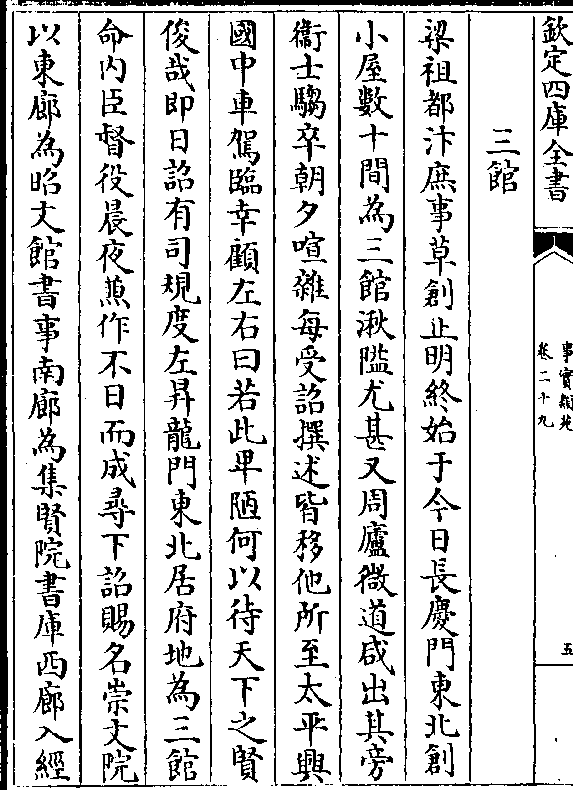 欽定四庫全書
事實類苑
卷二十九
五
三館
梁祖都汴庶事草創止明終始于今日長慶門東北創
小屋數十間為三館湫隘尤甚又周廬徼道咸出其旁
衛士騶卒朝夕喧雜每受詔撰述皆移他所至太平興
國中車駕臨幸顧左右曰若此卑陋何以待天下之賢
俊哉即日詔有司規度左昇龍門東北居府地為三館
命内臣督役晨夜兼作不日而成尋下詔賜名崇文院
以東廊為昭文館書事南廊為集賢院書庫西廊入經